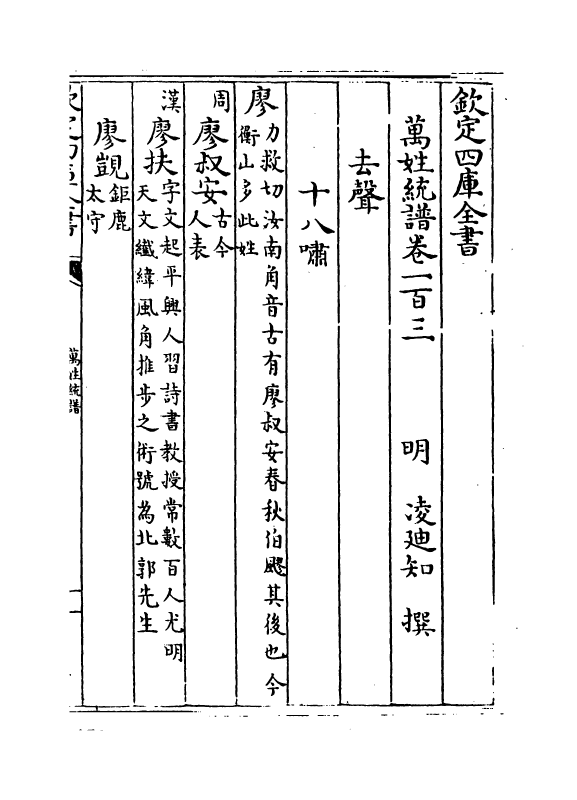 欽定四庫全書
萬姓統譜卷一百三
明 凌廸知 撰
去聲
十八嘯
廖力救切汝南角音古有廖叔安春秋伯飂其後也今
衡山多此姓
周
廖叔安古今
人表
漢
廖扶字文起平輿人習詩書教授常數百人尤明
天文䜟緯風角推步之術號為北郭先生
廖覬鉅鹿
太守
欽定四庫全書
萬姓統譜
一